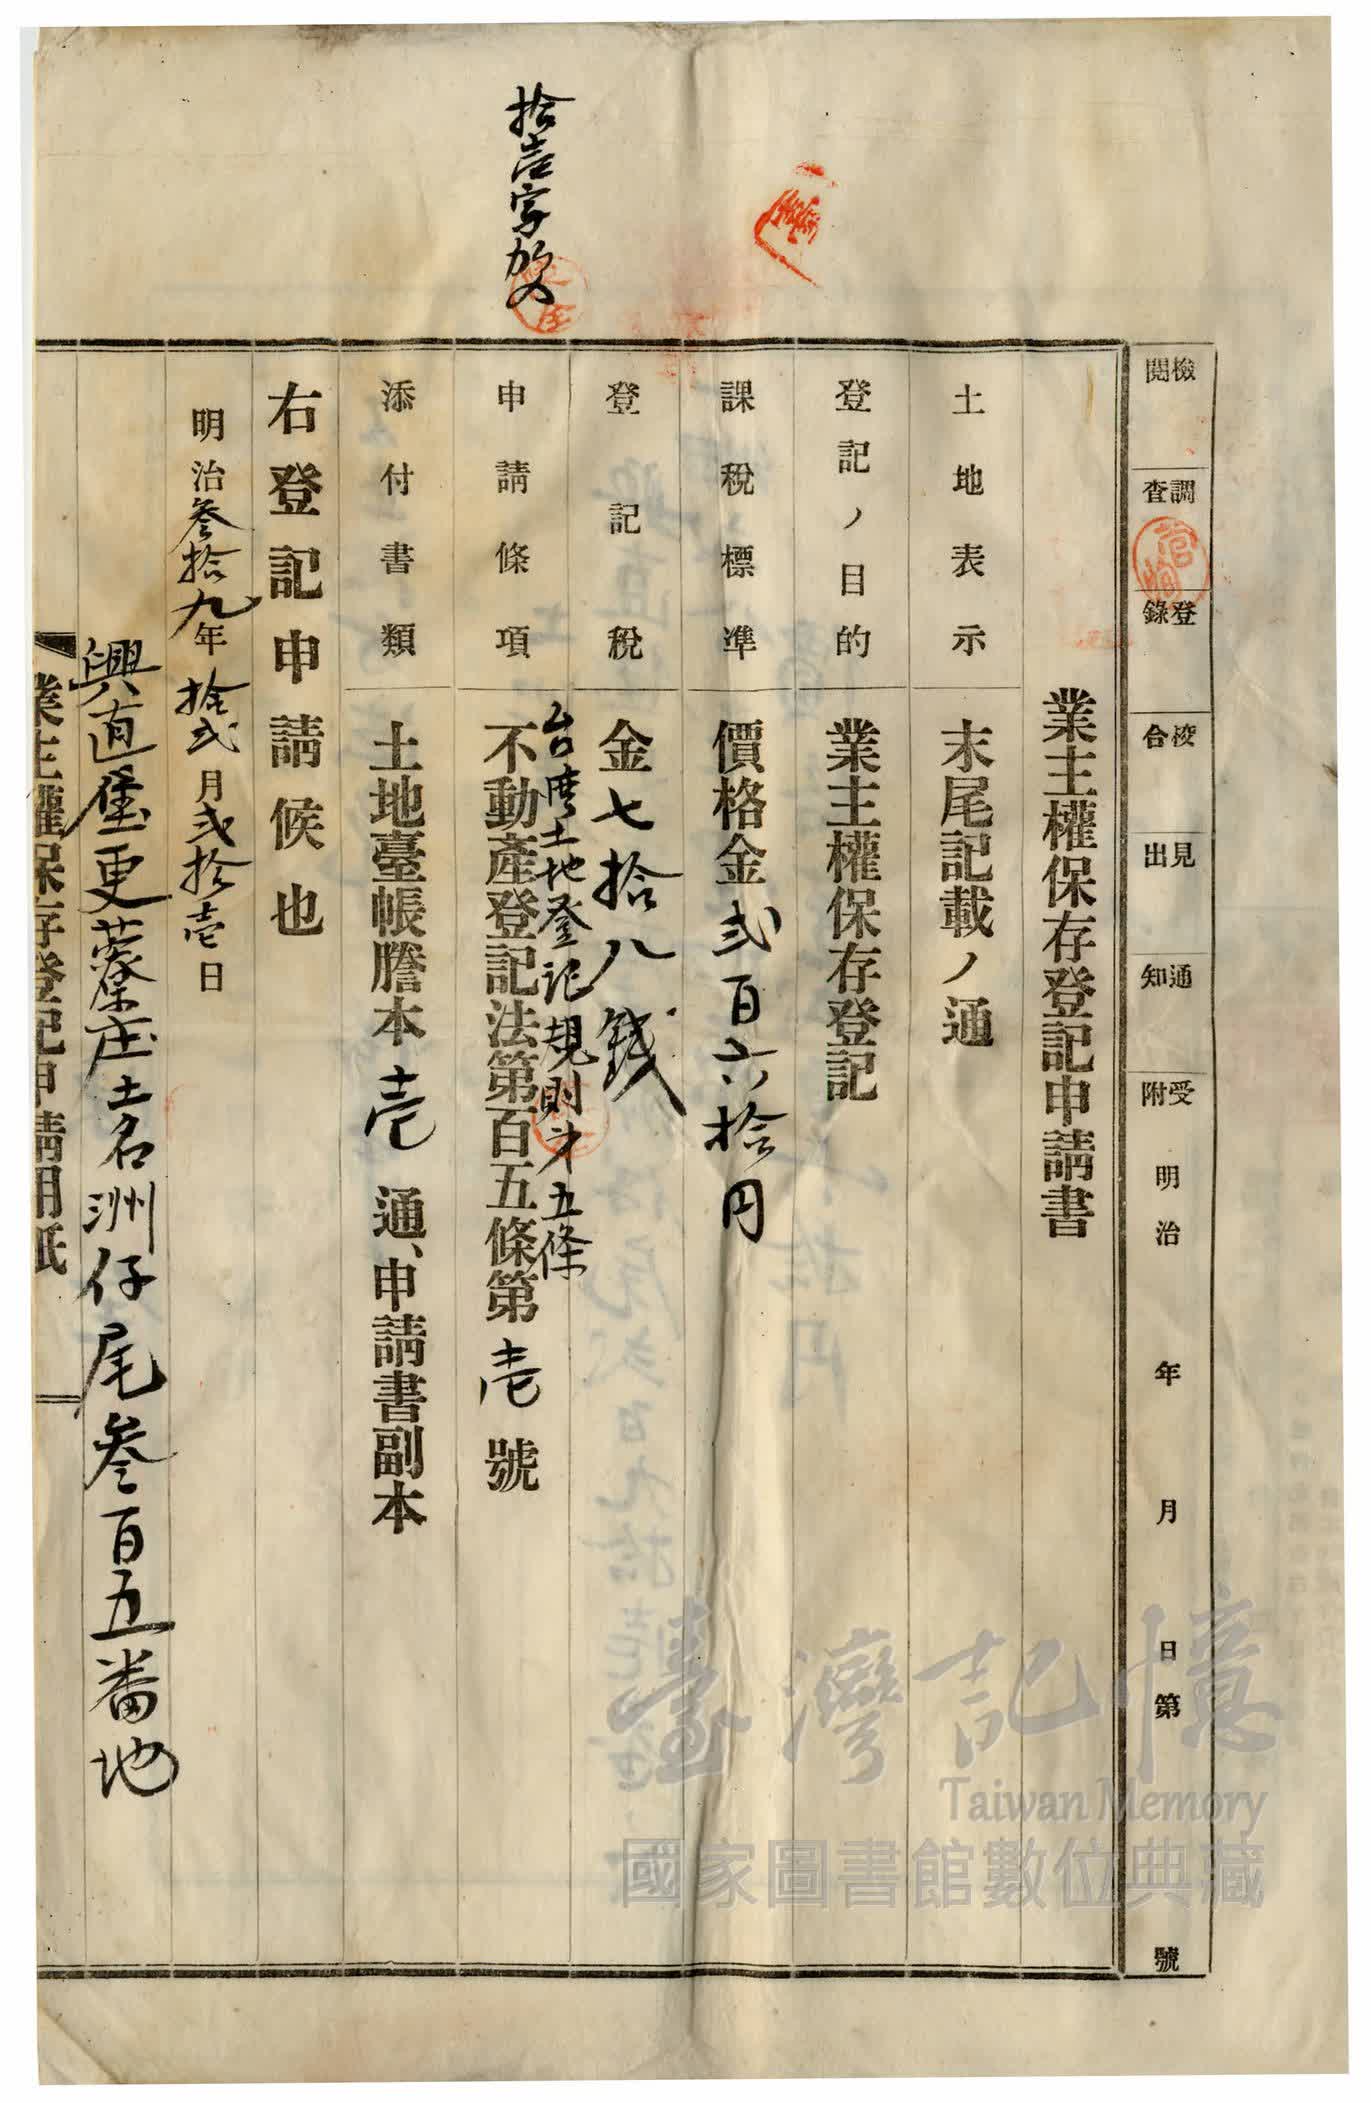 檢閱
調查
登錄
校合
見出
通知
受附 明治 年 月 日第 號
業主權保存登記申請書
土地表示 末尾記載ノ通
登記ノ目的 業主權保存登記
課稅標準 價格金弍百六拾円
登記稅 金七拾八錢
拾壱字加入
台湾土地登記規則才五條
申請條項 不動產登記法第百五條第壱號
添付書類 土地臺帳謄本壱通、申請書副本
右登記申請候也
明治叁拾九年拾弍月弍拾壱日
興直堡更藔庄土名洲仔尾叁百五番地
業主權保存登記申請用紙
臺灣記憶
Taiwan Memory
國家圖書館數位典藏